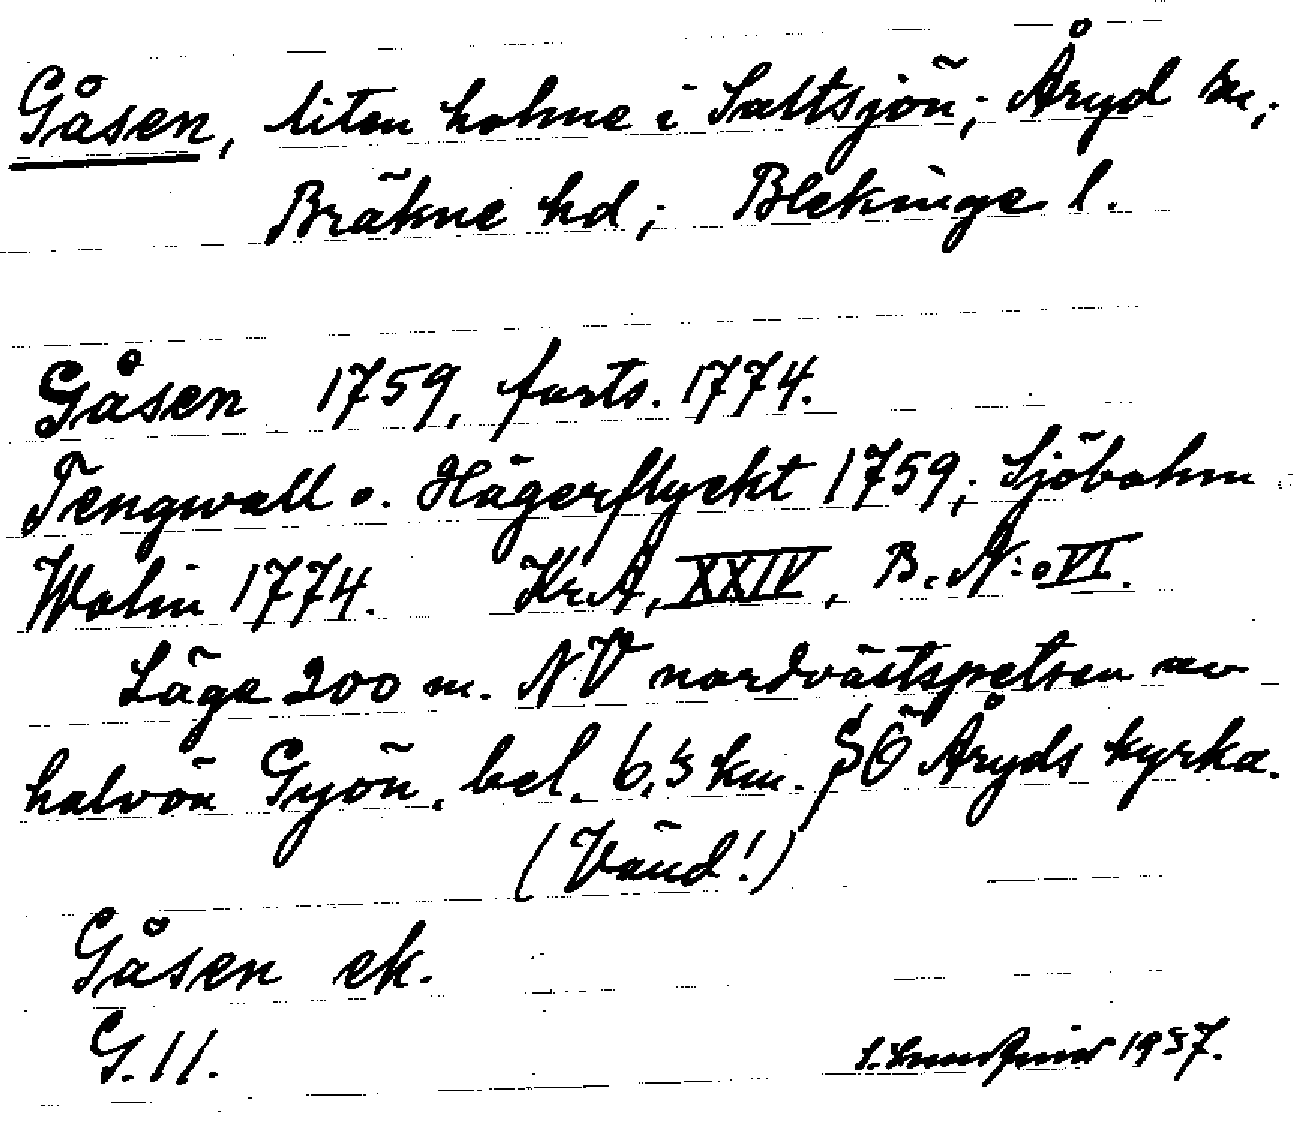 Gåsen, liten holme i Saltsjön; Åryd sn;
Bräkne hd; Blekinge l.
Gåsen 1759, forts. 1774.
Tengwall o. Hägerflyckt 1759; Sjöbohm
Wolin 1774. Kr.A, XXIV, B. N:o VI.
Läge 200 m. NV nordvästspetsen av
halvön Gyön, bel. 6,5 km. SÖ Åryds kyrka.
(Vänd!)
Gåsen ek.
G. 11. 1937.